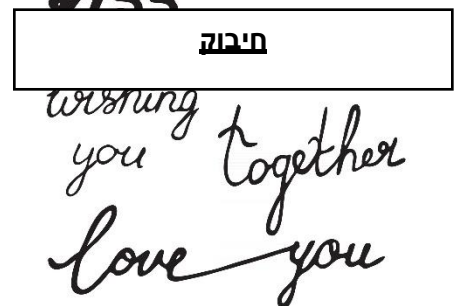 חיבוק
wishing
you together
love you